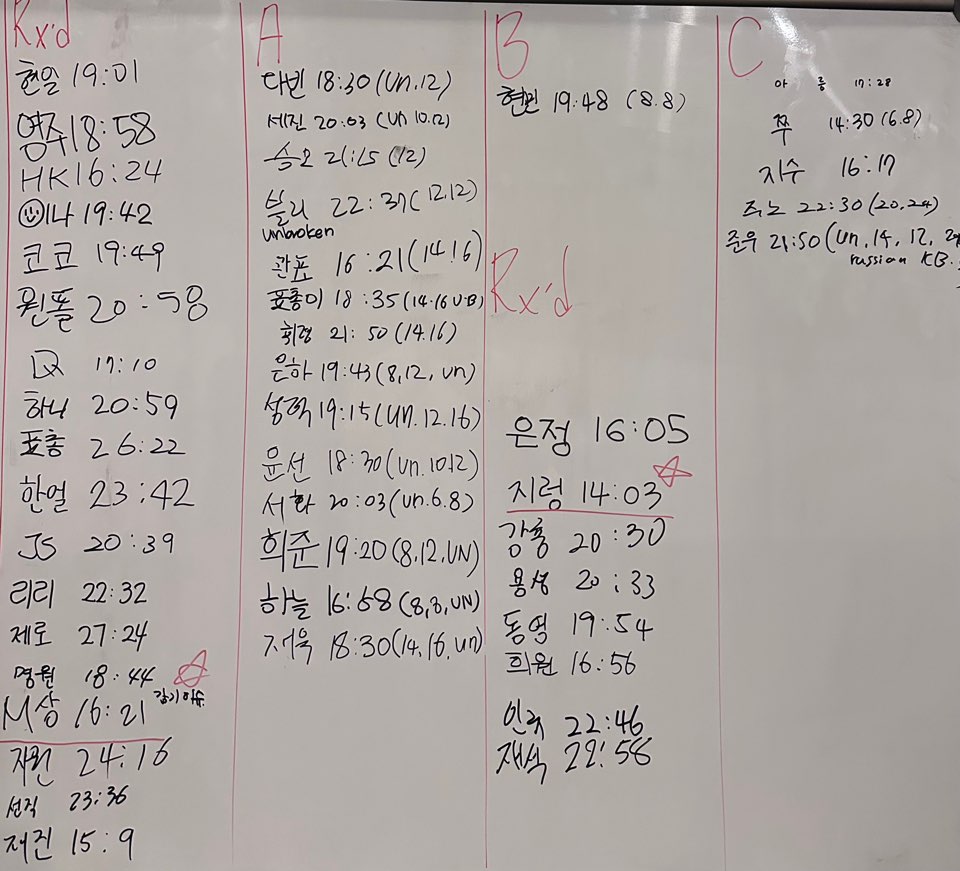 Rx'd
현일 19:01
영주 18:58
HK 16:24
☺이나 19:42
코코 19:49
왼똘 20:58
DX 17:10
하니 20:59
표총 26:22
한얼 23:42
JS 20:39
리리 22:32
제로 27:24
명원 18:44
감기이슈
M상 16:21
지원 24:16
선직 23:36
재진 15:9
A
다빈 18:30 (Un.12)
세진 20:03 (Un 10.12)
승오 21:15 (12)
블리 22:37 (12.12)
unbroken
관표 16:21 (14.16)
표총이 18:35 (14.16 U.B)
휘령 21:50 (14.16)
은하 19:43 (8,12, un)
성혁 19:15 (Un.12.16)
윤선 18:30 (un.10.12)
서화 20:03 (un.6.8)
희준 19:20 (8,12,UN)
하늘 16:58 (8,8,UN)
저욱 18:30 (14,16,un)
B
현민 19:48 (8.8)
Rx'd
은정 16:05
지렁 14:03 ☆
강룡 20:30
용성 20:33
동영 19:54
희원 16:56
인국 22:46
재석 22:58
C
아롱 17:28
쭈 14:30 (6.8)
지수 16:17
쥬노 22:30 (20,24)
준우 21:50 (Un, 14, 12,
russian KB.